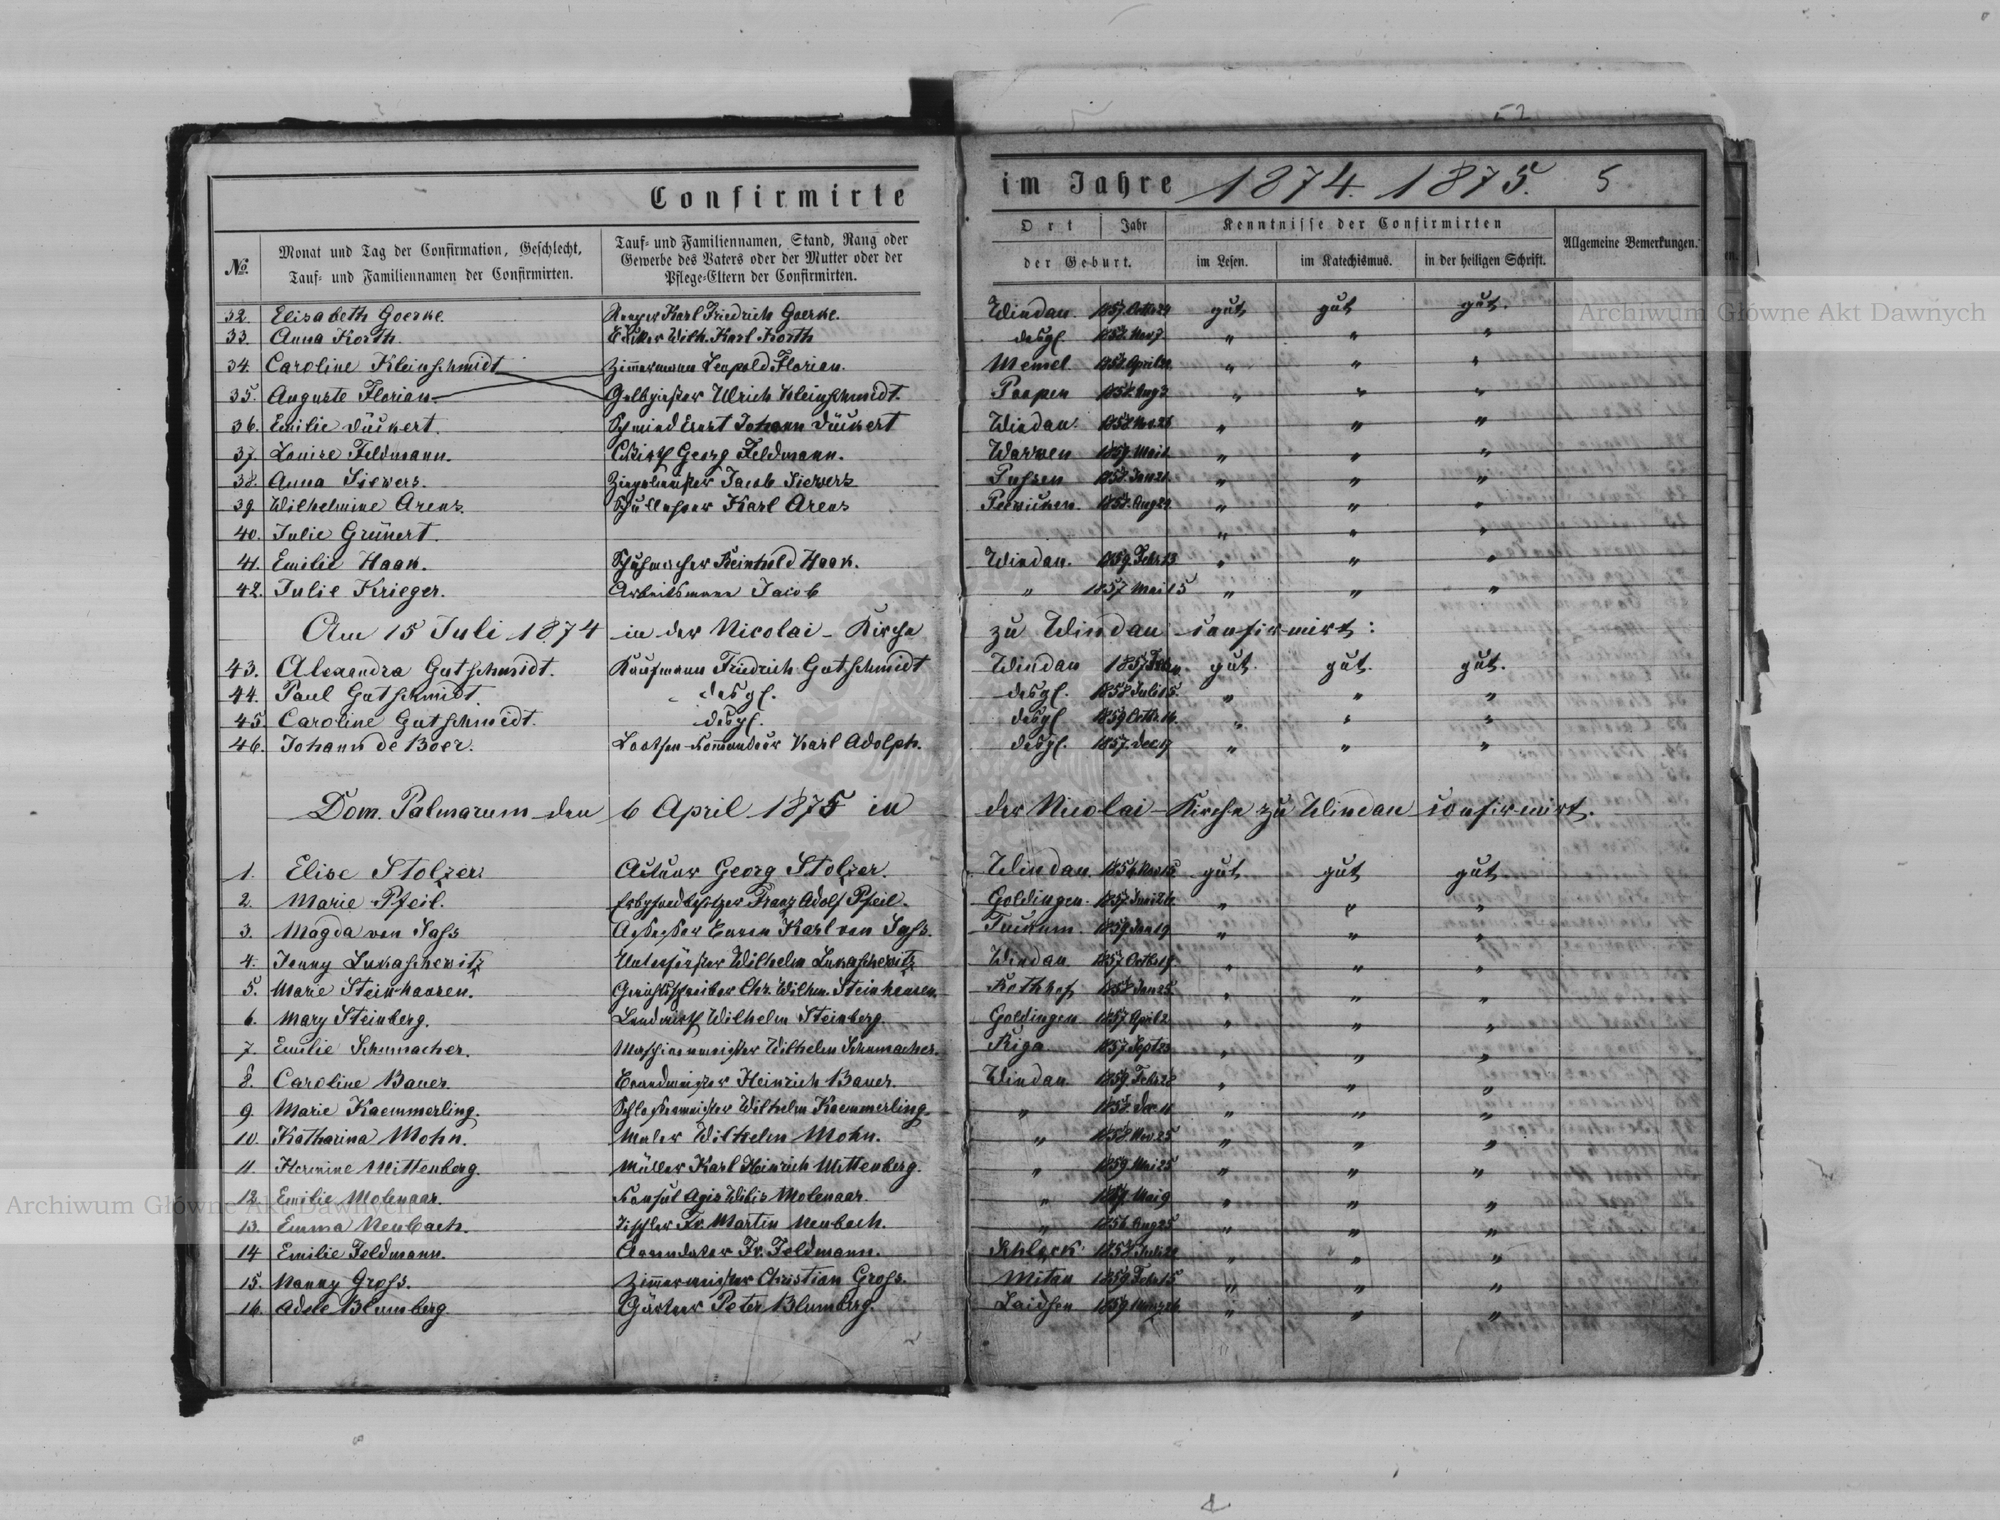 52
Confirmirte im Jahre 1874. 1875. 5
№.
Monat und Tag der Confirmation, Geschlecht,
Tauf- und Familiennamen der Confirmirten.
Tauf- und Familiennamen, Stand, Rang oder
Gewerbe des Vaters oder der Mutter oder der
Pflege-Eltern der Confirmirten.
Ort Jahr
der Geburt.
Kenntnisse der Confirmirten
im Lesen. im Katechismus. in der heiligen Schrift.
Allgemeine Bemerkungen.
Archiwum Główne Akt Dawnych
32. Elisabeth Goerke. Karl Friedrich Goerke. Windau. 1857 gut gut gut.
33. Anna Korth. Wilh. Karl Korth desgl. 1858 Nov 7 " " "
34. Caroline Kleinschmidt Zimmermann Leopold Florian. Memel 1858 April " " "
35. Auguste Florian Gelbgießer Ulrich Kleinschmidt. Poopen 1858 Aug 3 " " "
36. Emilie Dückert. Schmied Ernst Johann Dückert Windau. 1858 Nov 26 " " "
37. Louise Feldmann. Georg Feldmann. Warwen 1859 Mai " " "
38. Anna Siewers. Ziegelmeister Jacob Siewers Pussen 1858 Jan 21 " " "
39. Wilhelmine Arens. Schullehrer Karl Arens 1858 Aug 29 " " "
40. Julie Grünert. " " "
41. Emilie Haak. Schuhmacher Reinhold Haak. Windau. 1859 Febr 13 " " "
42. Julie Krieger. Arbeitsmann Jacob " 1857 Mai 15 " " "
Am 15 Juli 1874 in der Nicolai-Kirche zu Windau confirmirt:
43. Alexandra Gutschmidt. Kaufmann Friedrich Gutschmidt Windau 1857 gut. gut. gut.
44. Paul Gutschmidt. desgl. desgl. 1858 Juli 15. " " "
45. Caroline Gutschmidt. desgl. desgl. 1859 Octbr. 16. " " "
46. Johann de Boer. Lootsen-Kommandeur Karl Adolph. desgl. 1857. Dec. 17 " " "
Dom. Palmarum den 6 April 1875 in der Nicolai-Kirche zu Windau confirmirt.
1. Elise Stolzer. Actuar Georg Stolzer. Windau 1856 Nov 15 gut gut gut
2. Marie Pfeil. Franz Adolf Pfeil. Goldingen. 1857 Juni 26 " " "
3. Magda von Sass Assessor Baron Karl von Sass. Tuckum. 1859 Jan 19 " " "
4. Jenny Lukaschewitz Unterförster Wilhelm Lukaschewitz Windau 1857 Octbr 19 " " "
5. Marie Steinhausen. Gerichtsschreiber Chr. Wilhm. Steinhausen. Rothhof 1858 Jan 25 " " "
6. Mary Steinberg. Landwirth Wilhelm Steinberg. Goldingen 1857 April 2 " " "
7. Emilie Schumacher. Maschinenmeister Wilhelm Schumacher. Riga 1857 Sept " " "
8. Caroline Bauer. Brandmeister Heinrich Bauer. Windau 1859 Febr 28 " " "
9. Marie Kaemmerling. Schlossermeister Wilhelm Kaemmerling. " 1858 Dec 11 " " "
10. Katharina Mohn. Maler Wilhelm Mohn. " 1858 Nov 25 " " "
11. Hermine Mittenberg. Müller Karl Heinrich Mittenberg. " 1859 Mai 25 " " "
12. Emilie Molenaar. Konsul Molenaar. " Mai 9 " " "
13. Emma Neubach. Tischler Fr. Martin Neubach. " 1856 Aug 25 " " "
14 Emilie Feldmann. Arrendator Fr. Feldmann. Schleck 1858 " " "
15. Nanny Gross. Zimmermeister Christian Gross. Mitau 1859 Febr 15 " " "
16. Adele Blumberg. Gärtner Peter Blumberg. Laidsen 1859 März " " "
Archiwum Główne Akt Dawnych